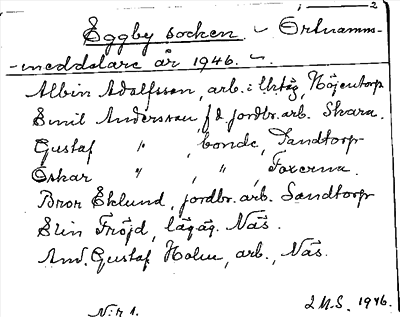 1 - 2
Eggby socken - Ortnamns-
-meddelare år 1946. -
Albin Adolfsson, arb. i Urtåg, Höjentorp
Emil Andersson, f.d. jordbr. arb. Skara.
Gustaf " , bonde, Sandtorp
Oskar " , " , Foxerna.
Bror Eklund, jordbr. arb. Sandtorp
Elin Fröjd, läg.äg. Näs.
And. Gustaf Holm, arb., Näs.
N:r 1. 2 M.S. 1946.